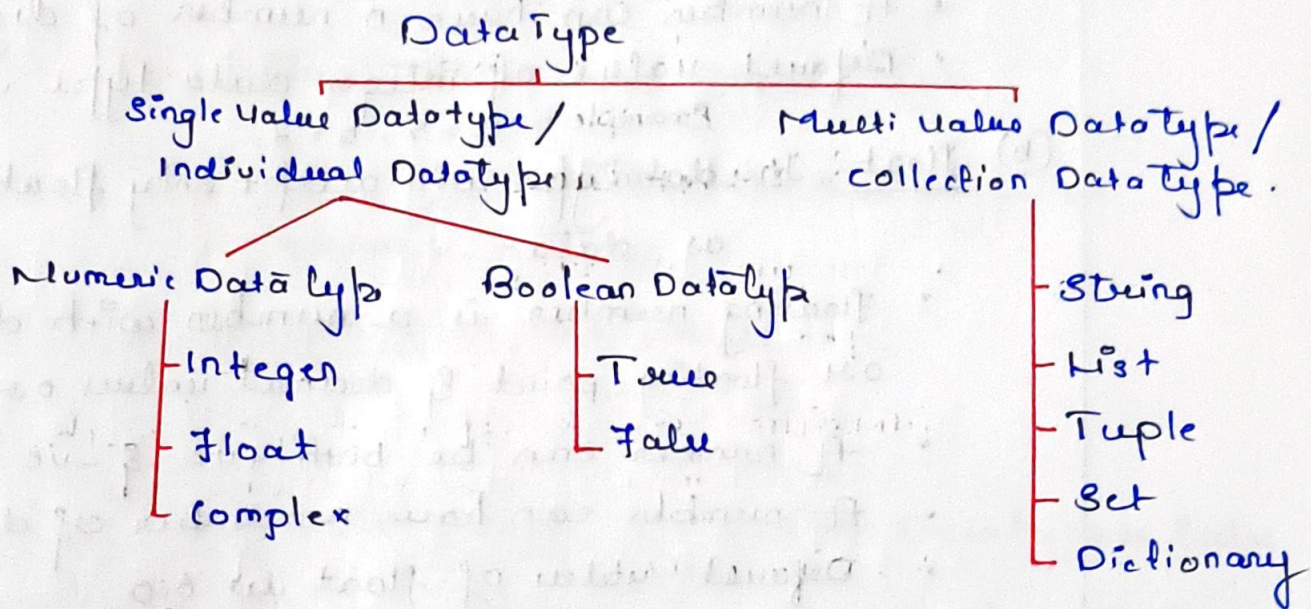 DataType
Single Value Datatype/
Individual Datatype
Multi Value Datatype/
Collection Datatype.
Numeric Datatype
Integer
Float
Complex
Boolean Datatype
True
False
String
List
Tuple
Set
Dictionary